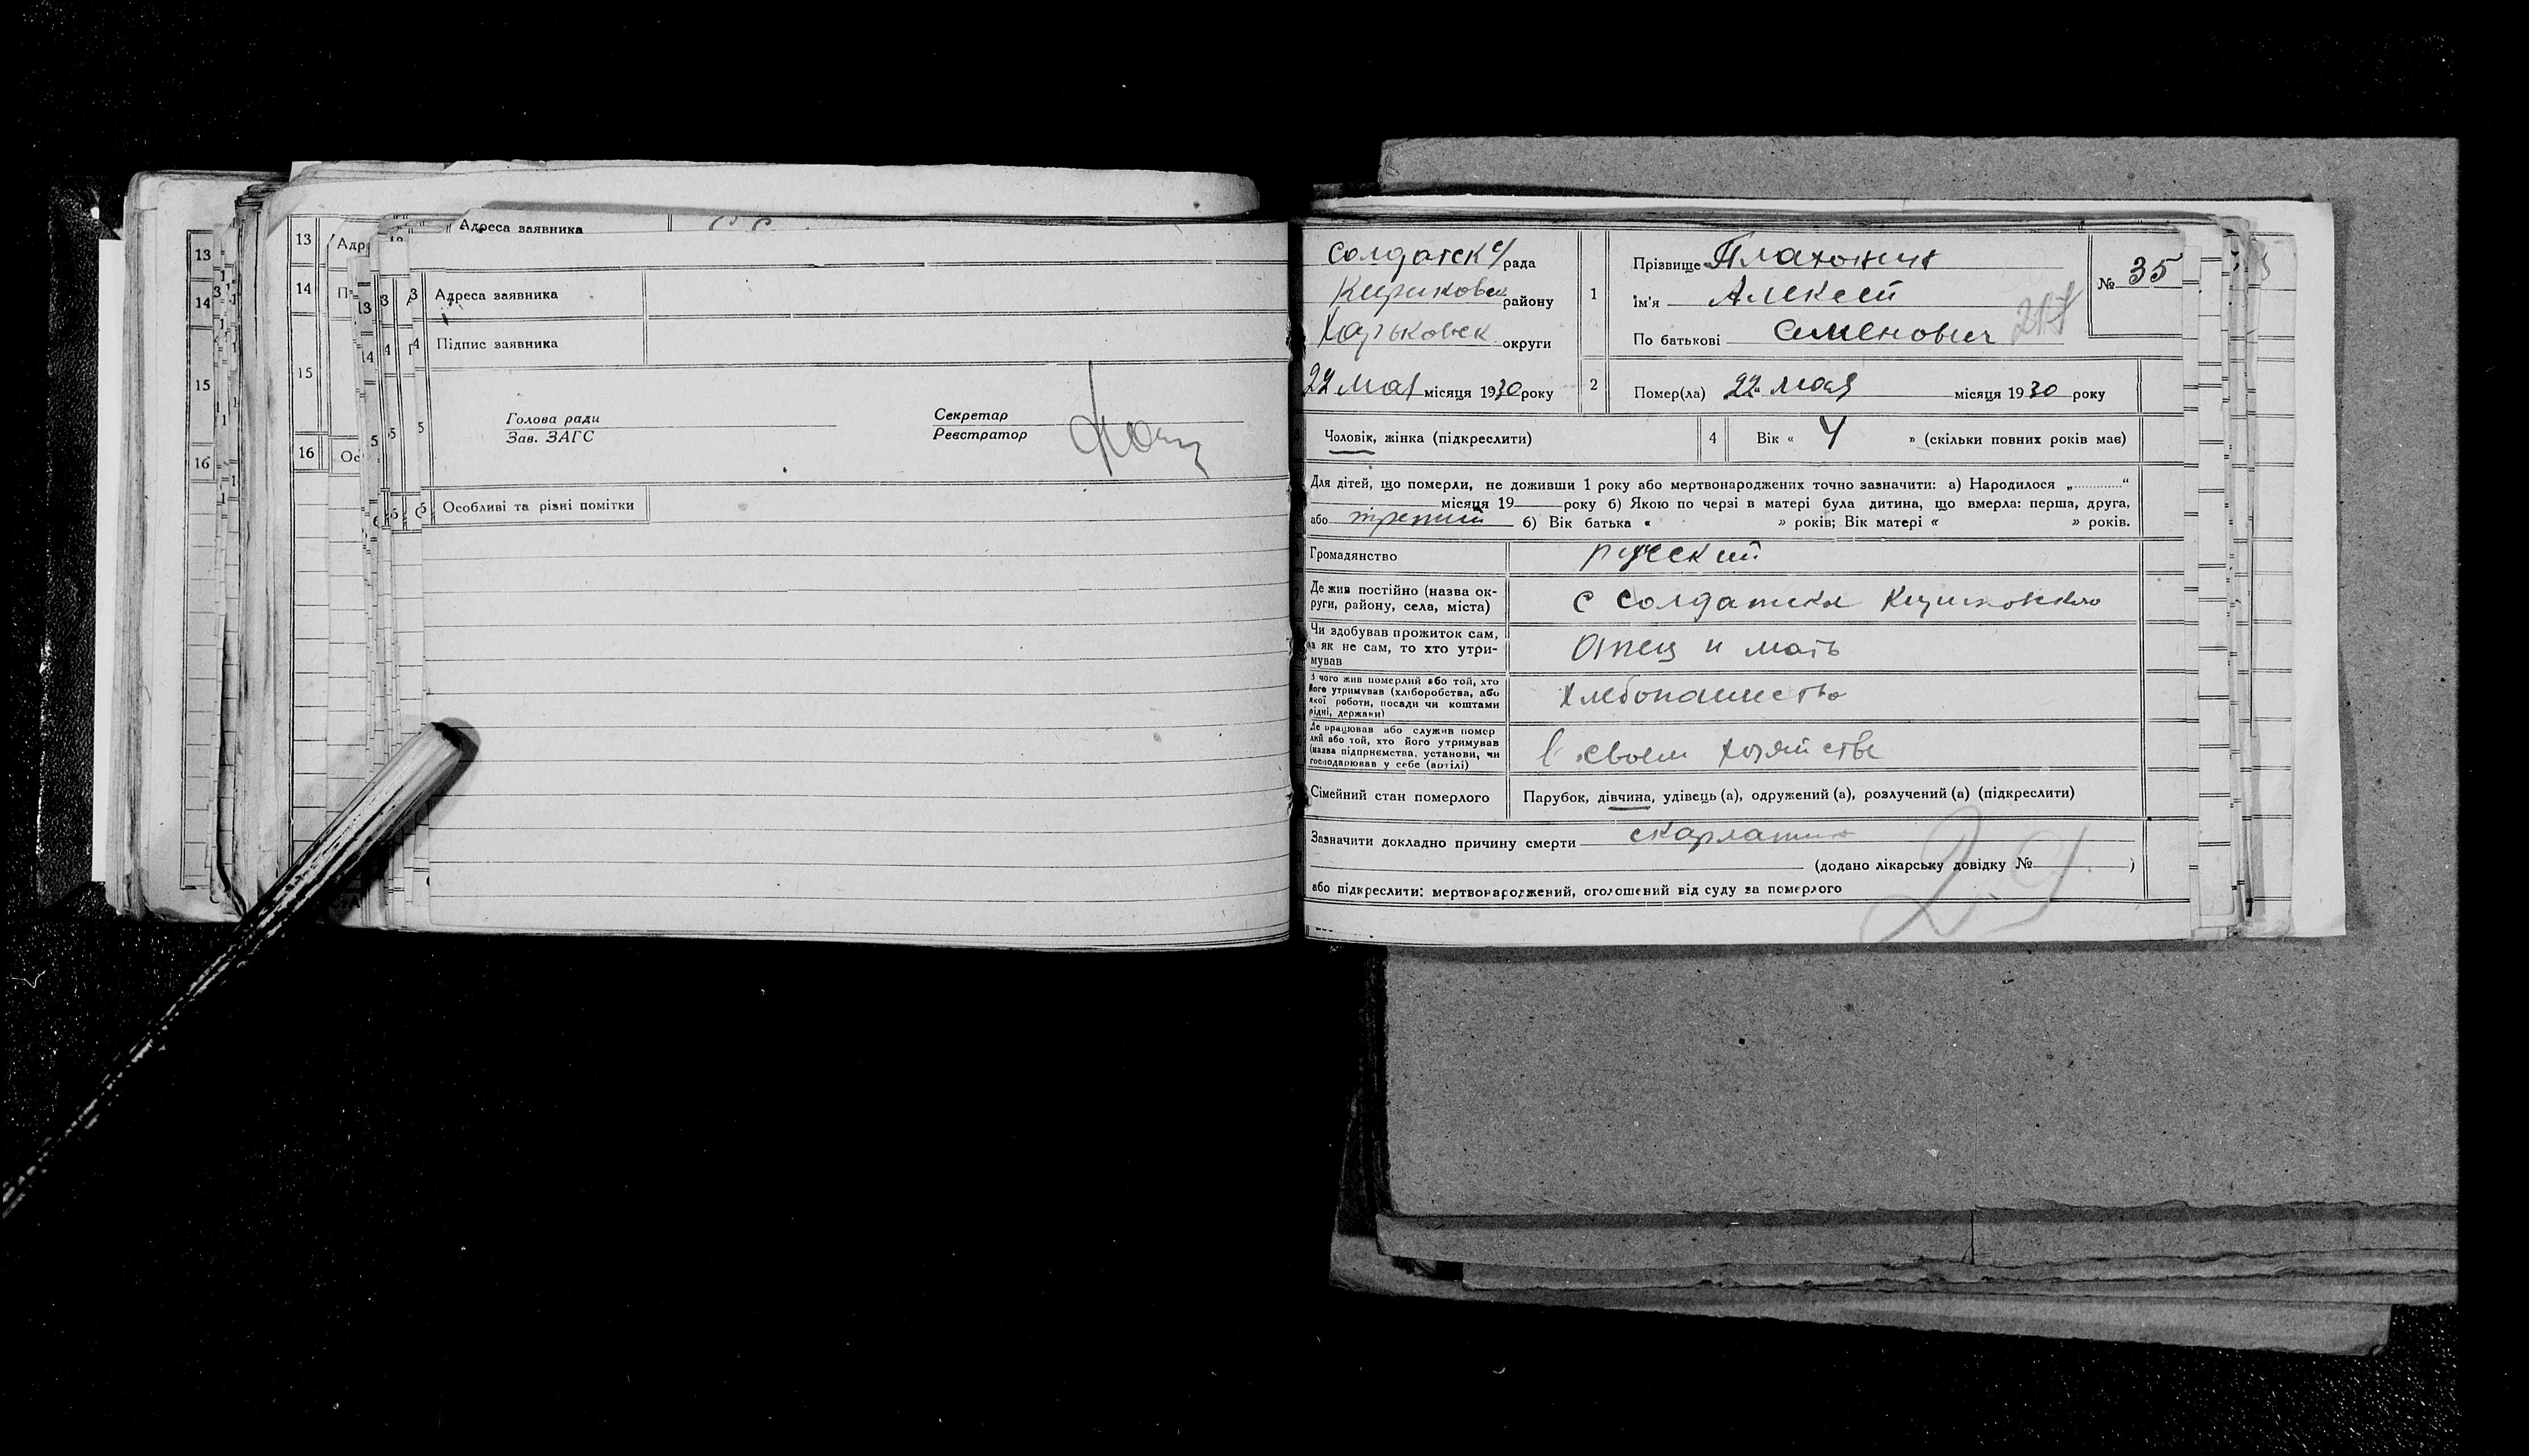 13
14
15
16
13
14
15
16
Адреса заявника
Адреса заявника
Підпис заявника
Голова ради
Зав. ЗАГС
Секретар
Реєстратор
Особливі та різні помітки
Солдатск с/рада
Кириковск району
Харьковск округи
22 мая місяця 1930 року
1
Прізвище Платонин
Ім'я Алексей
По батькові Семенович
№ 35
2
Помер(ла) 22 мая місяця 1930 року
Чоловік, жінка (підкреслити)
4
Вік « 4 » (скільки повних років має)
Для дітей, що померли, не доживши 1 року або мертвонароджених точно зазначити: а) Народилося „............“
місяця 19 року б) Якою по черзі в матері була дитина, що вмерла: перша, друга,
або третий б) Вік батька « » років; Вік матері « » років.
Громадянство русский
Де жив постійно (назва округи, району, села, міста) с Солдатска Кириковского
Чи здобував прожиток сам,
а як не сам, то хто утри-
мував
Отец и мать
З чого жив померлий або той, хто
його утримував (хліборобства, або
якої роботи, посади чи коштами
рідні, держави)
Хлебопашество
Де працював або служив помер
лий або той, хто його утримував
(назва підприємства, установи, чи
господарював у себе (артілі)
в своем хозяйстве
Сімейний стан померлого Парубок, дівчина, удівець (а), одружений (а), розлучений (а) (підкреслити)
Зазначити докладно причину смерти скарлатина
(додано лікарську довідку № )
або підкреслити: мертвонароджений, оголошений від суду за померлого
29